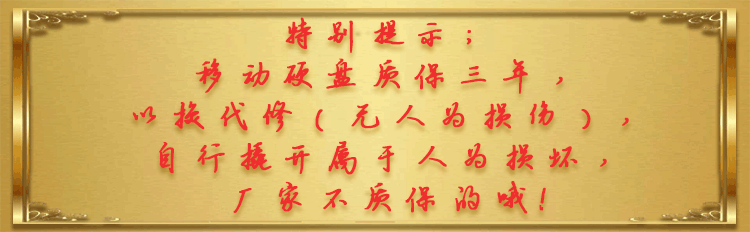 特别提示；
移动硬盘质保三年，
以换代修（无人为损伤），
自行撬开属于人为损坏，
厂家不质保的哦！